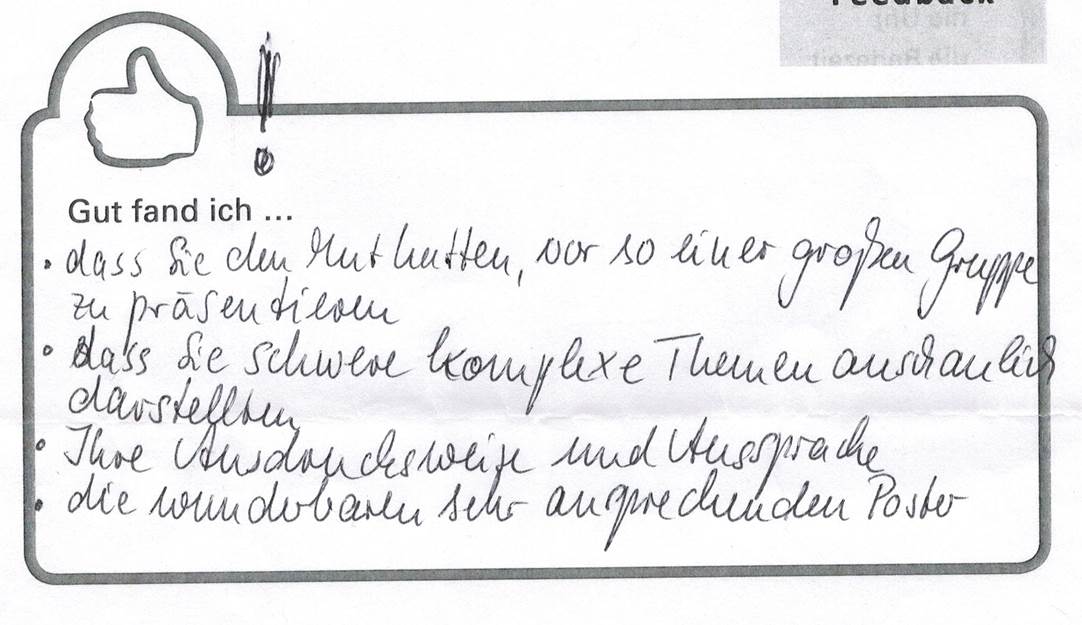 Feedback
die Uhr
die Badezeit
!
Gut fand ich ...
• dass Sie den Mut hatten, vor so einer großen Gruppe
zu präsentieren
• dass Sie schwere komplexe Themen anschaulich
darstellten
• Ihre Ausdrucksweise und Aussprache
• die wunderbaren sehr ansprechenden Poster